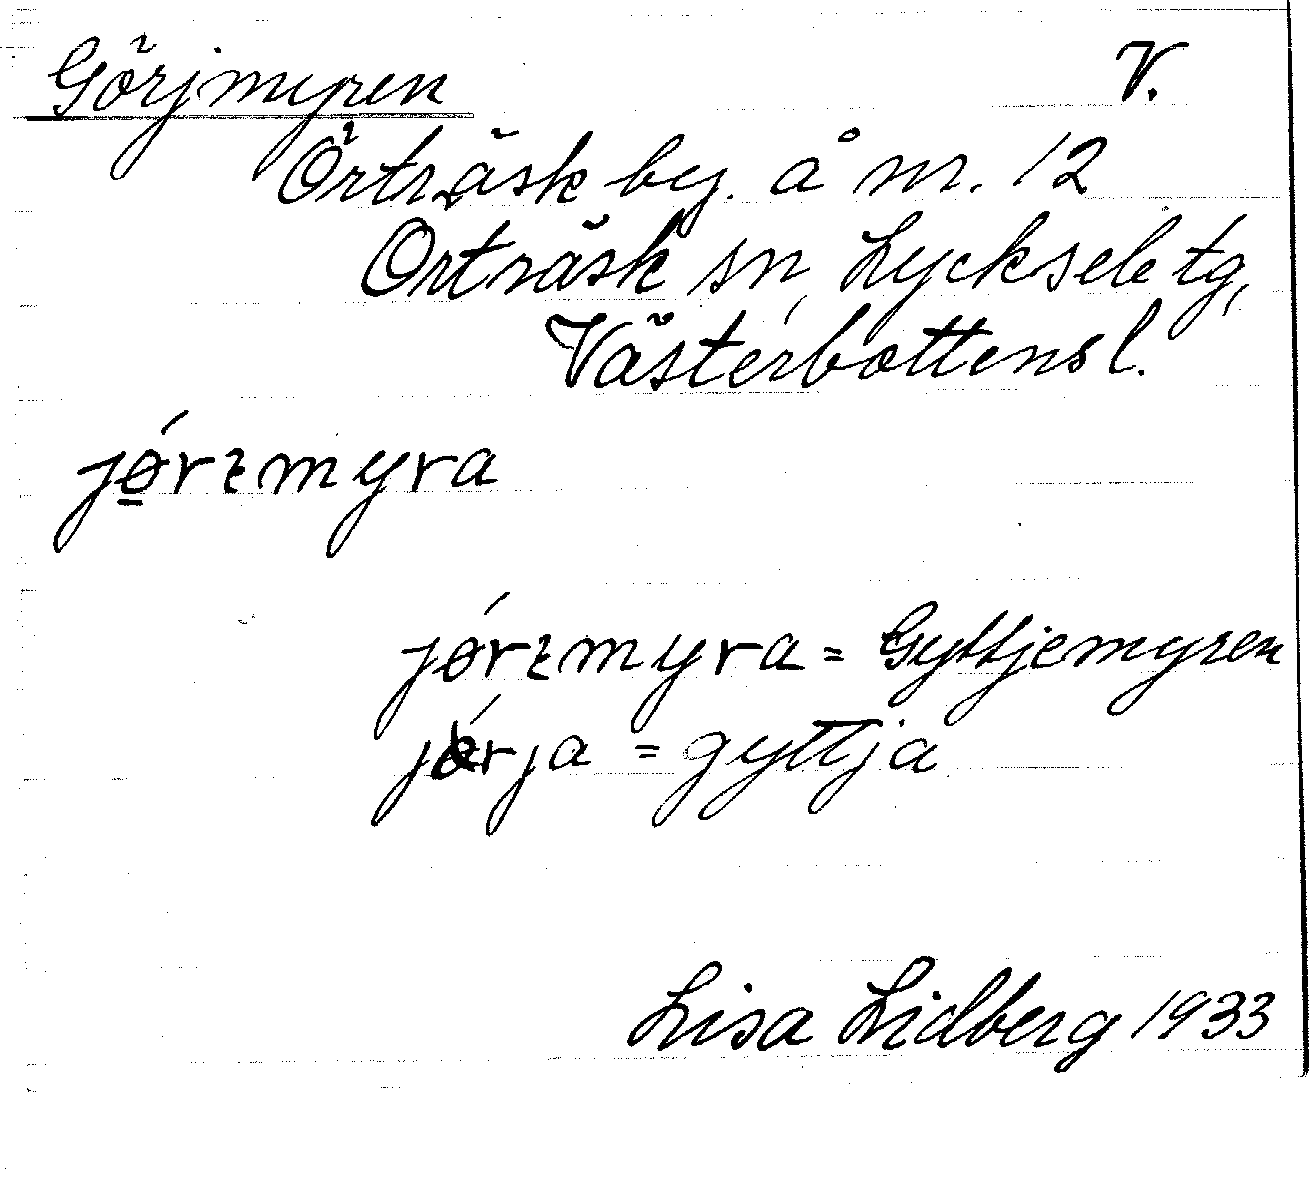 Görjmyren V.
Örträsk by. å nr. 12
Örträsk sn, Lycksele tg,
Västerbottens l.
jǿ̲rꝛmyra
jǿrꝛmyra = Gyttjemyren
jǿrja = gyttja
Lisa Lidberg 1933